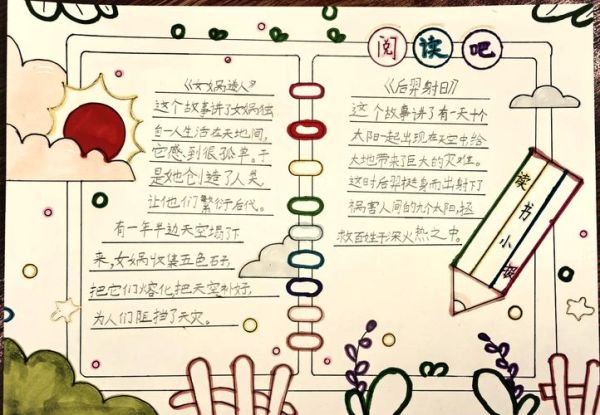 阅读吧
《女娲造人》
这个故事讲了女娲独
自一人生活在天地间,
它感到很孤单。于
是她创造了人类,
让他们繁衍后代。
有一年半边天空塌了下
来,女娲收集五色石,
把它们熔化,把天空补好,
为人们阻挡了天灾。
《后羿射日》
这个故事讲了有一天十个
太阳一起出现在天空中,给
大地带来了巨大的灾难。
这时后羿挺身而出射下了
祸害人间的九个太阳,拯
救百姓于深火热之中。
读书小报